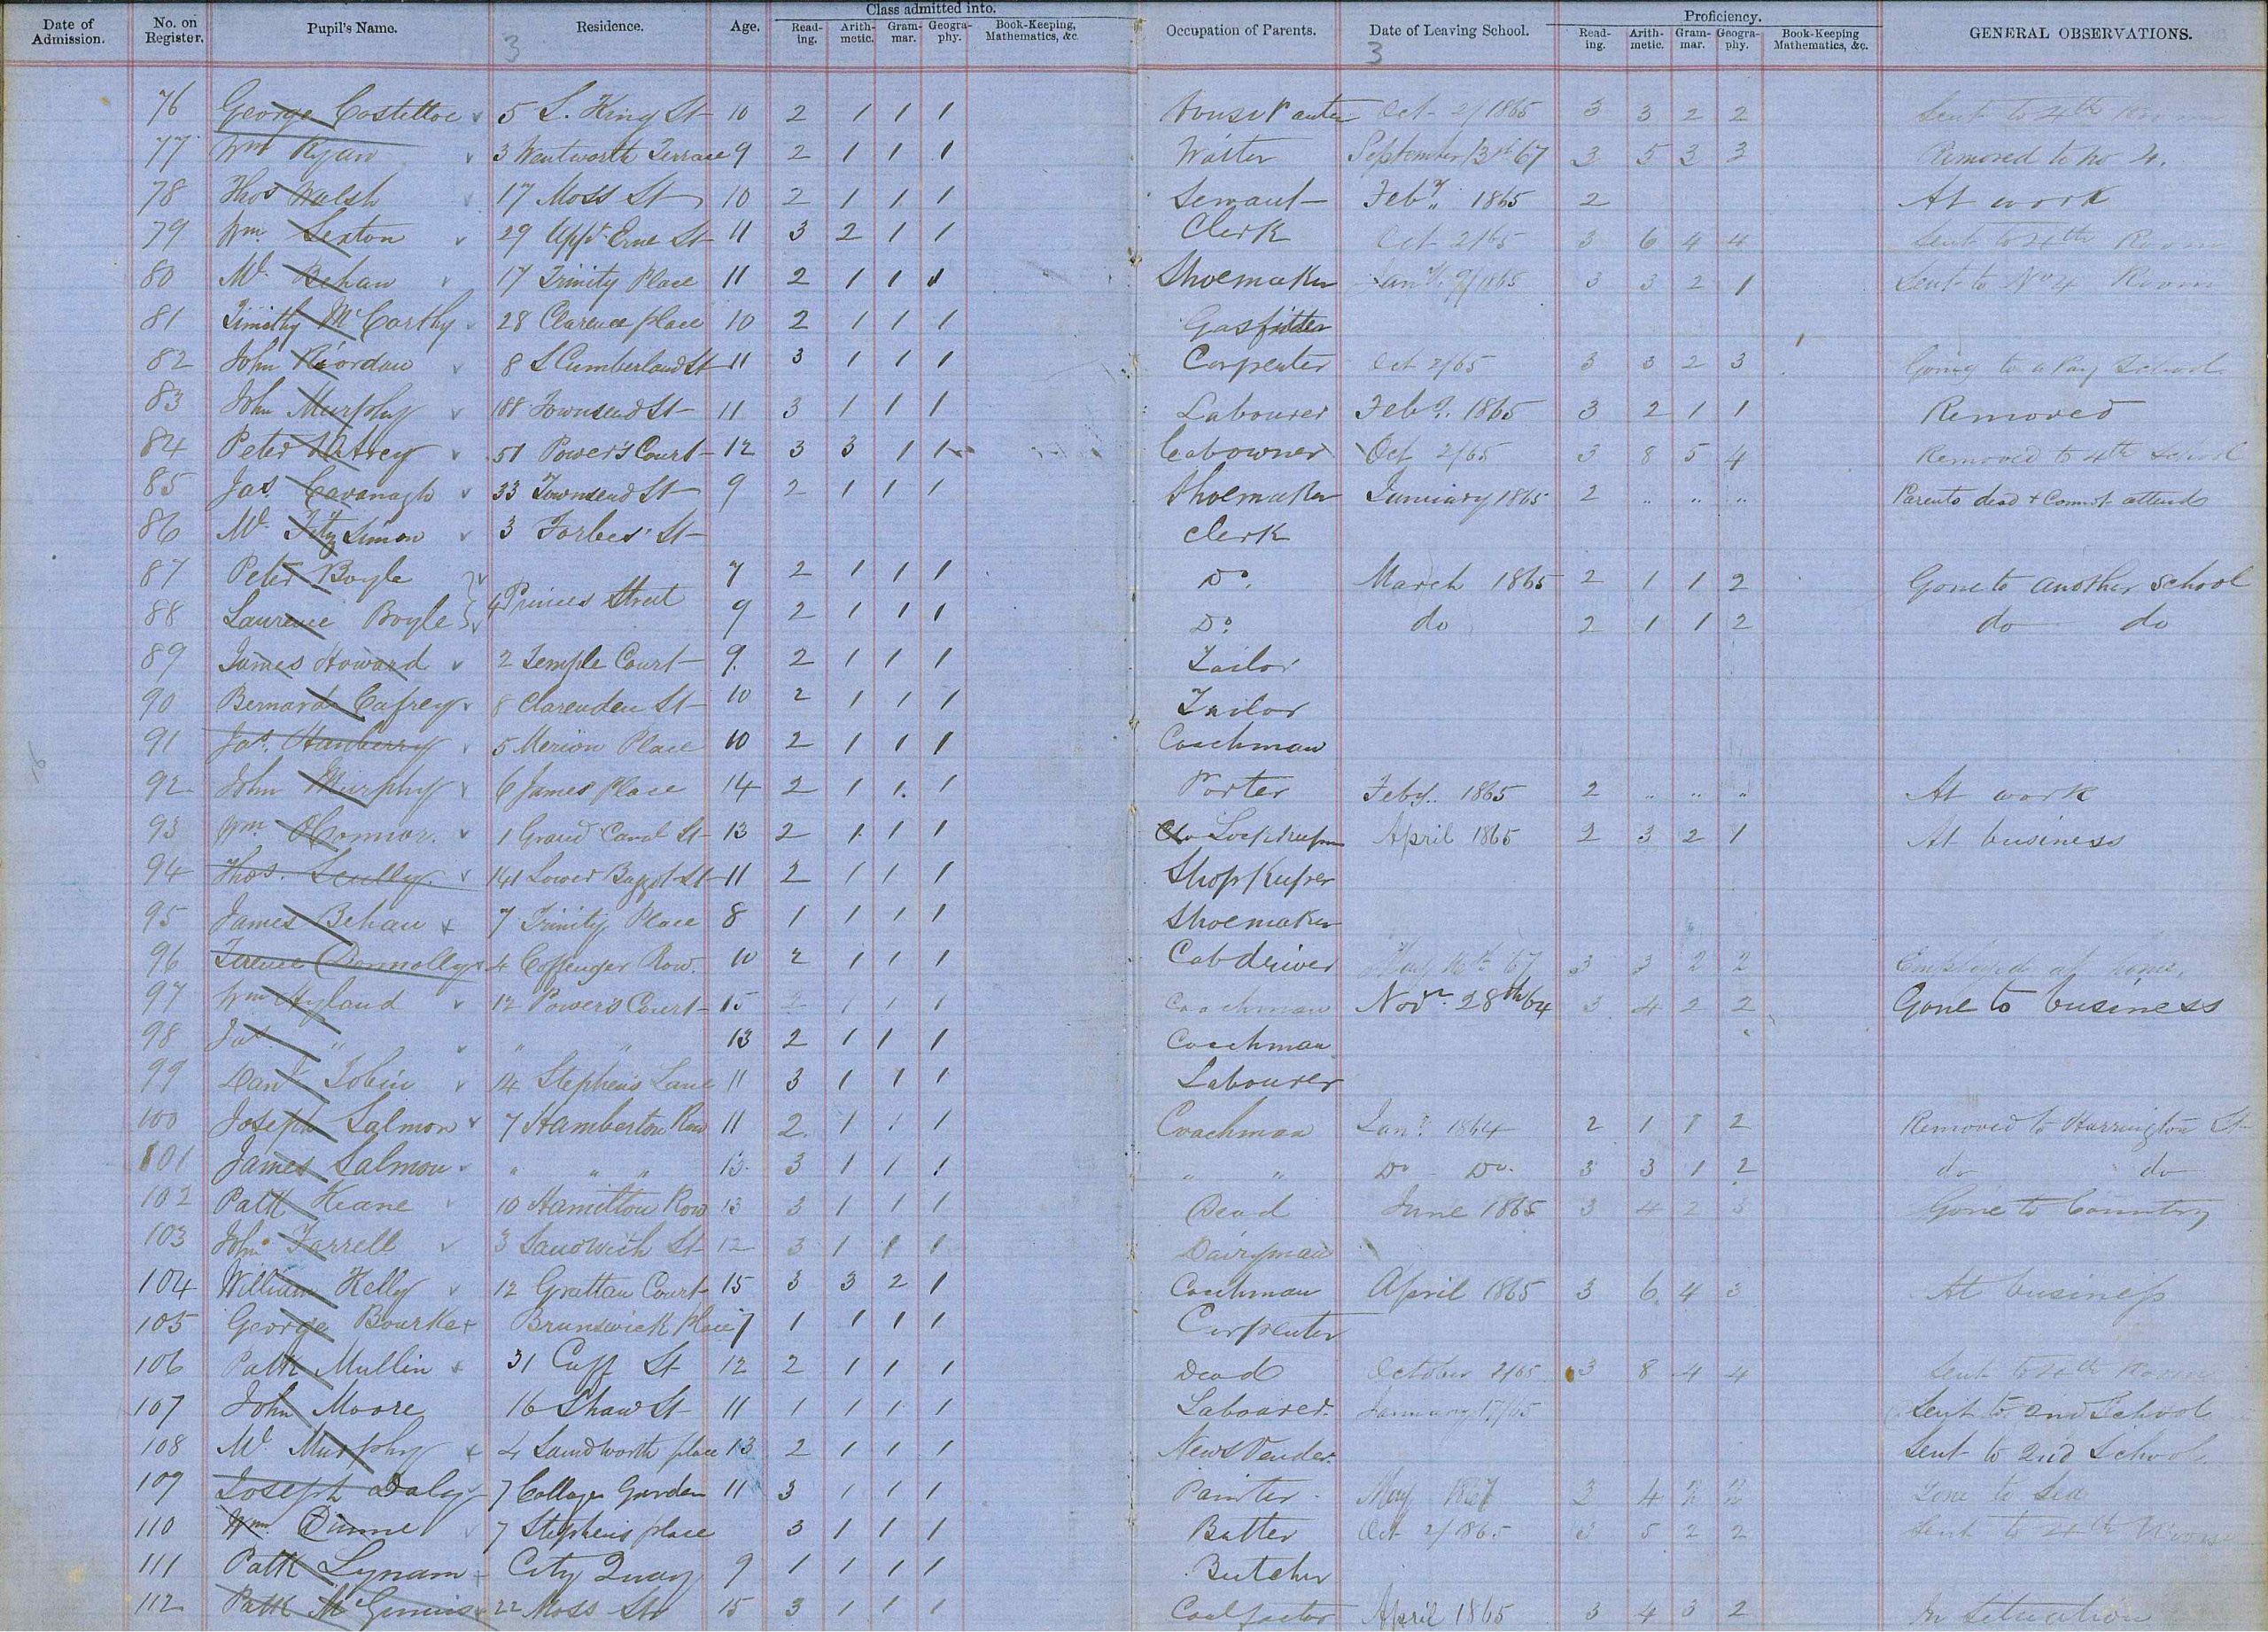 Date of Admission. No. on Register. Pupil's Name. Residence. Age. Class admitted into. Reading. Arithmetic. Grammar. Geography. Book-Keeping, Mathematics, &c. Occupation of Parents. Date of Leaving School. Proficiency. Reading. Arithmetic. Grammar. Geography. Book-Keeping Mathematics, &c. GENERAL OBSERVATIONS.
3 3
76 George Costelloe 5 S. King St 10 2 1 1 1 Oct 2/1865 3 3 2 2 Sent to 4th Room
77 Wm Ryan 3 Wentworth Terrace 9 2 1 1 1 Waiter September 13th 67 3 5 3 3 Removed to No 4.
78 Thos Walsh 17 Moss St 10 2 1 1 1 Servant Feby 1865 2 At work
79 Wm. Sexton 29 Uppr. Erne St 11 3 2 1 1 Clerk Oct 2/65 3 6 4 4 Sent to 4th Room
80 Ml Behan 17 Trinity Place 11 2 1 1 1 Shoemaker Jany. 9/1865 3 3 2 1 Sent to No 4 Room
81 Timithy McCarthy 28 Clarence place 10 2 1 1 1 Gasfitter
82 John Riordan 8 S Cumberland St 11 3 1 1 1 Carpenter Oct 2/65 3 3 2 3 Going to a Pay School
83 John Murphy 188 Townsend St 11 3 1 1 1 Labourer Feby. 1865 3 2 1 1 Removed
84 Peter 51 Power's Court 12 3 3 1 1 Cabowner Oct 2/65 3 8 5 4 Removed to 4th School
85 Jas. Cavanagh 33 Townsend St 9 2 1 1 1 Shoemaker January 1865 2 " " " Parents dead & Cannot attend
86 Ml Fitzsimon 3 Forbes' St Clerk
87 Peter Boyle 4 Princes Street 7 2 1 1 1 Do. March 1865 2 1 1 2 Gone to another School
88 Laurence Boyle 9 2 1 1 1 Do. do 2 1 1 2 do do
89 James Howard 2 Temple Court 9. 2 1 1 1 Tailor
90 Bernard Cafrey 8 Clarenden St 10 2 1 1 1 Tailor
91 Jas. Hanberry 5 Merion Place 10 2 1 1 1 Coachman
92 John Murphy 6 James Place 14 2 1 1 1 Porter Feby. 1865 2 " " " At work
93 Wm O'Connor. 1 Grand Canal St 13 2 1 1 1 April 1865 2 3 2 1 At business
94 Thos. Scully 141 Lower Baggot St 11 2 1 1 1 Shopkeeper
95 James Behan 7 Trinity Place 8 1 1 1 1 Shoemaker
96 Terence Donnolly 4 Coppenger Row. 10 2 1 1 1 Cabdriver May 16th 67 3 3 2 2 Employed at home.
97 Wm Hyland 12 Power's Court 15 2 1 1 1 Coachman Novr. 28th 64 3 4 2 2 Gone to business
98 Jas. " " " 13 2 1 1 1 Coachman
99 Danl Tobin 14 Stephens Lane 11 3 1 1 1 Labourer
100 Joseph Salmon 7 Hamberton Row 11 2. 1 1 1 Coachman Jany. 1864 2 1 1 2 Removed to Harrington St
101 James Salmon " " " 13. 3 1 1 1 " " Do Do. 3 3 1 2 do do
102 Patk Keane 10 Hamilton Row 13 3 1 1 1 Dead June 1865 3 4 2 3 Gone to Country
103 John Farrell 3 Sandwith St 12 3 1 1 1 Dairyman
104 William Kelly 12 Grattan Court 15 3 3 2 1 Coachman April 1865 3 6 4 3 At business
105 George Bourke Brunswick Place 7 1 1 1 1 Carpenter
106 Patk Mullin 31 Cuff St 12 2 1 1 1 Dead October 2/65 3 8 4 4 Sent to 4th Room
107 John Moore 16 Shaw St 11 1 1 1 1 Labourer. January 17/65 Sent to 2nd School
108 Ml Murphy 4 Sandworth place 13 2 1 1 1 News Vender. Sent to 2nd School.
109 Joseph Daly 7 College Garden 11 3 1 1 1 Painter May 1867 3 4 2 2 Gone to Sea
110 Wm Dunne 7 Stephens place 3 1 1 1 Butler Oct 2/1865 3 5 2 2 Sent to 4th Room
111 Patk Lynam City Quay 9 1 1 1 1 Butcher
112 Patk McGinnis 22 Moss St 15 3 1 1 1 Coalfactor April 1865 3 4 3 2 In Situation